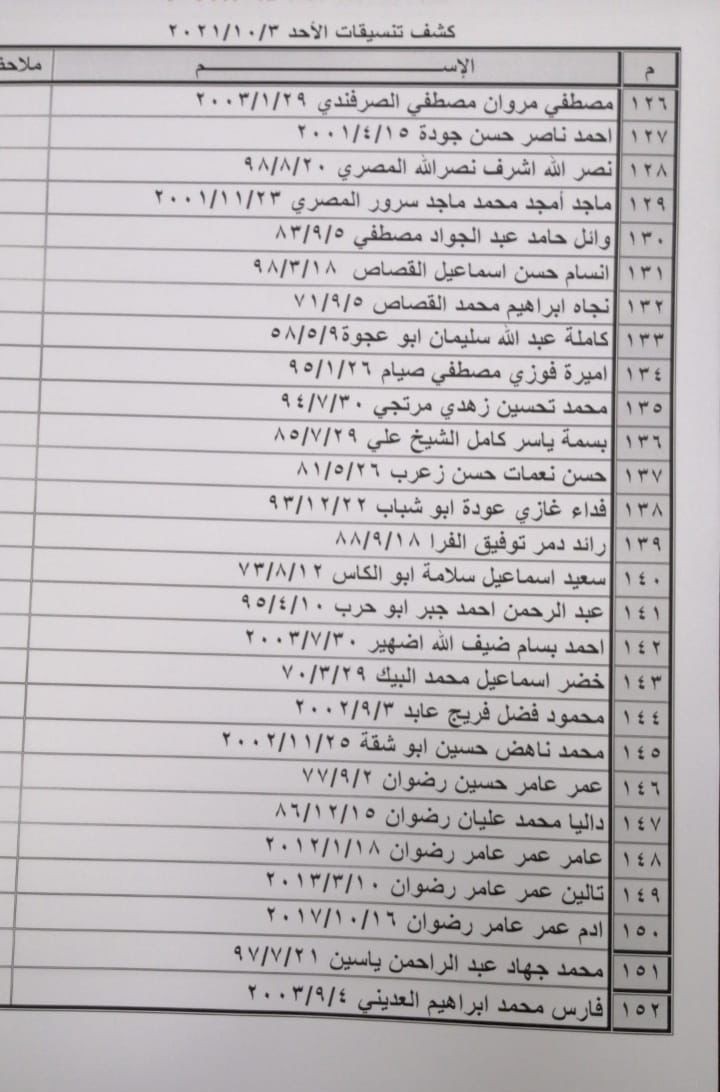 كشف تنسيقات الأحد ٢٠٢١/١٠/٣
م الإســـــــــم ملاحظ
١٢٦ مصطفي مروان مصطفي الصرفندي ٢٠٠٣/١/٢٩
١٢٧ احمد ناصر حسن جودة ٢٠٠١/٤/١٥
١٢٨ نصر الله اشرف نصرالله المصري ٩٨/٨/٢٠
١٢٩ ماجد أمجد محمد ماجد سرور المصري ٢٠٠١/١١/٢٣
١٣٠ وائل حامد عبد الجواد مصطفي ٨٣/٩/٥
١٣١ انسام حسن اسماعيل القصاص ٩٨/٣/١٨
١٣٢ نجاه ابراهيم محمد القصاص ٧١/٩/٥
١٣٣ كاملة عبد الله سليمان ابو عجوة٥٨/٥/٩
١٣٤ اميرة فوزي مصطفي صيام ٩٥/١/٢٦
١٣٥ محمد تحسين زهدي مرتجي ٩٤/٧/٣٠
١٣٦ بسمة ياسر كامل الشيخ علي ٨٥/٧/٢٩
١٣٧ حسن نعمات حسن زعرب ٨١/٥/٢٦
١٣٨ فداء غازي عودة ابو شباب ٩٣/١٢/٢٢
١٣٩ رائد دمر توفيق الفرا ٨٨/٩/١٨
١٤٠ سعيد اسماعيل سلامة ابو الكاس ٧٣/٨/١٢
١٤١ عبد الرحمن احمد جبر ابو حرب ٩٥/٤/١٠
١٤٢ احمد بسام ضيف الله اضهير ٢٠٠٣/٧/٣٠
١٤٣ خضر اسماعيل محمد البيك ٧٠/٣/٢٩
١٤٤ محمود فضل فريج عابد ٢٠٠٢/٩/٣
١٤٥ محمد ناهض حسين ابو شقة ٢٠٠٢/١١/٢٥
١٤٦ عمر عامر حسين رضوان ٧٧/٩/٢
١٤٧ داليا محمد عليان رضوان ٨٦/١٢/١٥
١٤٨ عامر عمر عامر رضوان ٢٠١٢/١/١٨
١٤٩ تالين عمر عامر رضوان ٢٠١٣/٣/١٠
١٥٠ ادم عمر عامر رضوان ٢٠١٧/١٠/١٦
١٥١ محمد جهاد عبد الراحمن ياسين ٩٧/٧/٢١
١٥٢ فارس محمد ابراهيم العديني ٢٠٠٣/٩/٤